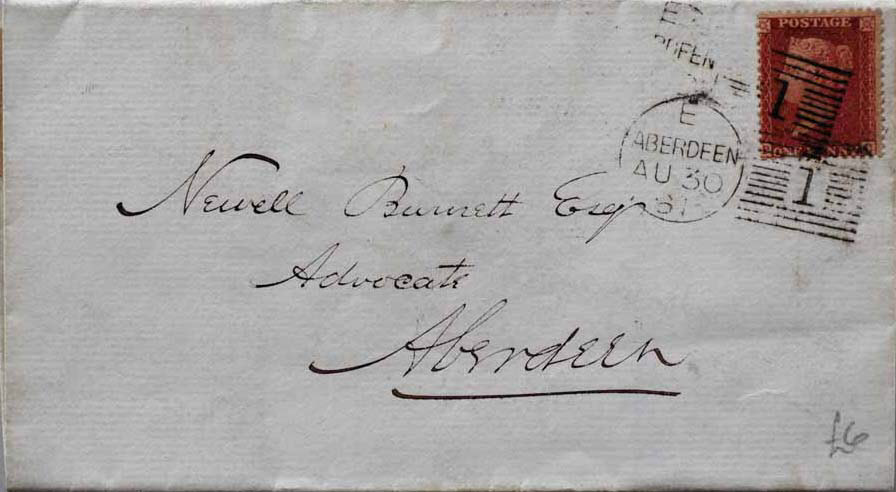 POSTAGE
ONE PENNY
1
E
ABERDEEN
AU 30
61
1
Newell Burnett Esqr
Advocate
Aberdeen
£6